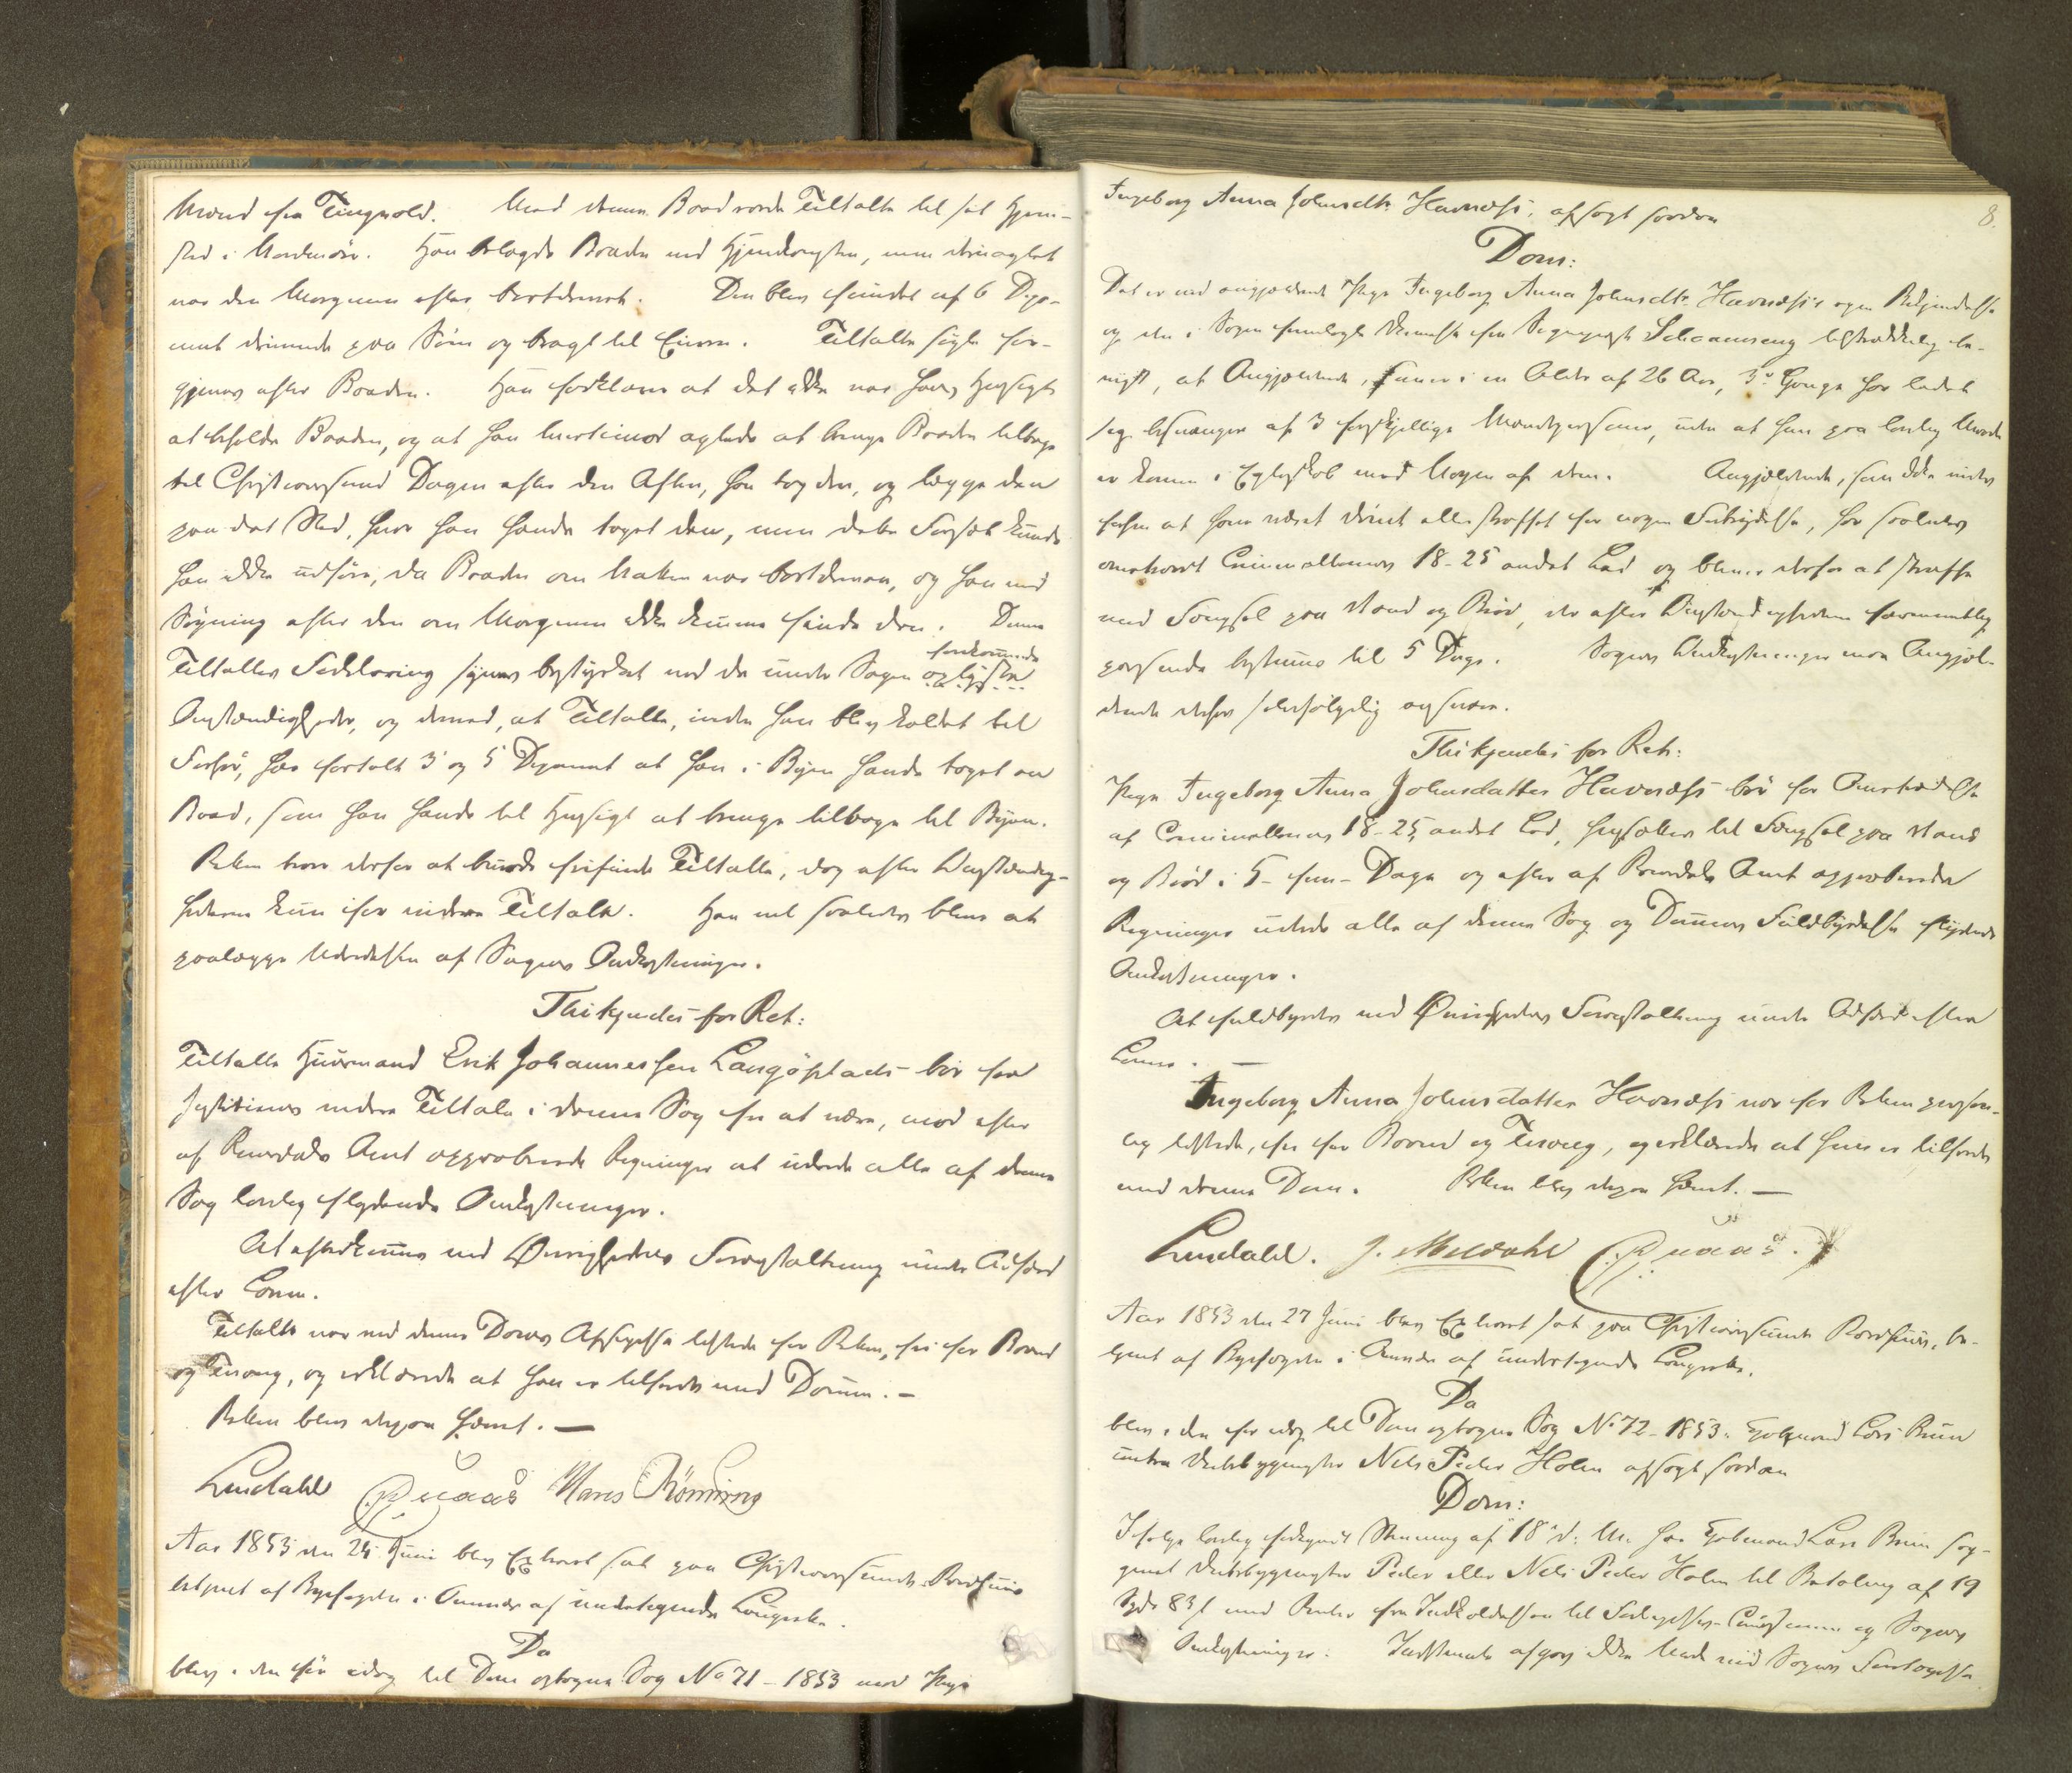 Mand fra Tingvold. Med denne Baad roede Tiltalte til sit Hjem-
sted i Nordmøre. Han belagde Baaden ved Hjemkomsten, men desuagtet
var den Morgenen efter bortdrevet. Den blev fundet af 6 Depo-
nent drivende paa Søen og bragt til Land. Tiltalte søgte for-
gjeves efter Baaden. Han forklarer at det ikke var hans Hensigt
at beholde Baaden, og at han tvertimod agtede at bringe Baaden tilbage
til Christianssund Dagen efter den Aften, han tog den, og lægge den
paa det Sted, hvor han havde taget den, men dette Forsæt kunde
han ikke udføre, da Baaden om Natten var bortdreven, og han ved
Søgning efter den om Morgenen ikke kunne finde den. Denne
Tiltaltes Forklaring synes bestyrket ved de under Sagen oplyste forekomne
Omstændigheder, og derved, at Tiltalte, inden han blev kaldet til
Forhør, har fortalt 3 og 5 Deponent at han i Byen havde taget en
Baad, som han havde til Hensigt at bringe tilbage til Byen.
Retten troer derfor at burde frifinde Tiltalte, dog efter Omstændig-
hederne kun for videre Tiltale. Han vil saaledes blive at
paalægge Udredelsen af Sagens Omkostninger.
Thi kjendes for Ret:
Tiltalte Huusmand Erik Johannessen Langøplads bør for
Justitiens videre Tiltale i denne Sag fri at være, mod efter
af Romsdals Amt approberede Regninger at udrede alle af denne
Sag lovlig flydende Omkostninger.
At efterkommes ved Øvrighedens Foranstaltning under Adfærd
efter Loven.
Tiltalte var ved denne Doms Afsigelse tilstede for Retten, fri for Baand
og Tvang, og erklærede at han er tilfreds med Dommen. –
Retten blev derpaa hævet. —
Lindahl Quaas Hans Rønning
Aar 1853 den 24 Juni blev Extraret sat paa Christianssunds Raadhuus
betjent af Byefogden i Overvær af undertegnede Laugrette.
Da
blev i den før idag til Doms optagne Sag No 71 – 1853 mod Pige
8.
Ingeborg Anna Johnsdtr Havnæss, afsagt saadan
Dom:
Det er ved angjældende Pige Ingeborg Anna Johnsdtr. Havnæss's egen Bekjendelse
og den i Sagen fremlagte Skrivelse fra Sognepræst tilstrækkelig be-
viist, at Angjældende, som er i en Alder af 26 Aar, 3de Gange har ladet
sig besvangre af 3 forskjellige Mandspersoner, uden at hun paa lovlig Maade
er kommen i Egteskab med Nogen af dem. Angjældende, som ikke vides
forhen at have været dømt eller straffet for nogen Forbrydelse, har saaledes
overtraadt Criminallovens 18–25 andet Led og bliver derfor at straffe
med Fængsel paa Vand og Brød, der efter Omstændighederne formeentlig
passende bestemmes til 5 Dage. Sagens Omkostninger maa Angjæl-
dende derhos selvfølgelig og svare.
Thi kjendes for Ret:
Pige Ingeborg Anna Johnsdatter Havnæss bør for Overtrædelse
af Criminallovens 18–25, andet Led, hensættes til Fængsel paa Vand
og Brød i 5 – fem – Dage og efter af Romsdals Amt approberede
Regninger udrede alle af denne Sag og Dommens Fuldbyrdelse flydende
Omkostninger.
At fuldbyrdes ved Øvrighedens Foranstaltning under Adfærd efter
Loven. —
Ingeborg Anna Johnsdatter Havnæss var for Retten person-
lig tilstede, fri for Baand og Tvang, og erklærede at hun er tilfreds
med denne Dom. Retten blev derpaa hævet. —
Lindahl. J. Meldahl Quaas.
Aar 1853 den 27 Juni blev Extraret sat paa Christianssunds Raadhuus, be-
tjent af Byefogden i Overvær af undertegnede Laugrette.
Da
blev i den før idag til Dom optagne Sag No 72 – 1853: Lars Brun
contra Skibsbygmester Nels Peder Holm afsagt saadan
Dom:
Ifølge lovlig forkyndt Stevning af 18 d: M. har Lars Brun sag-
søgt Skibsbygmester Peder eller Nels Peder Holm til Betaling af 19
Spd 83 s med Renter fra til Forligelses-Commissionen og Sagens
Omkostninger. Indstevnte afgav ikke Møde ved Sagens Foretagelse